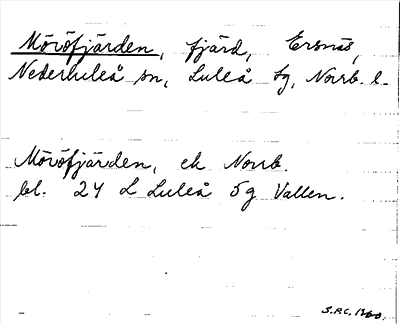 Möröfjärden, fjärd, Ersnäs,
Nederluleå sn, Luleå tg, Norrb. l.
Möröfjärden, ek Norrb.
bl. 24 L Luleå 5g Vallen.
S.P.C.